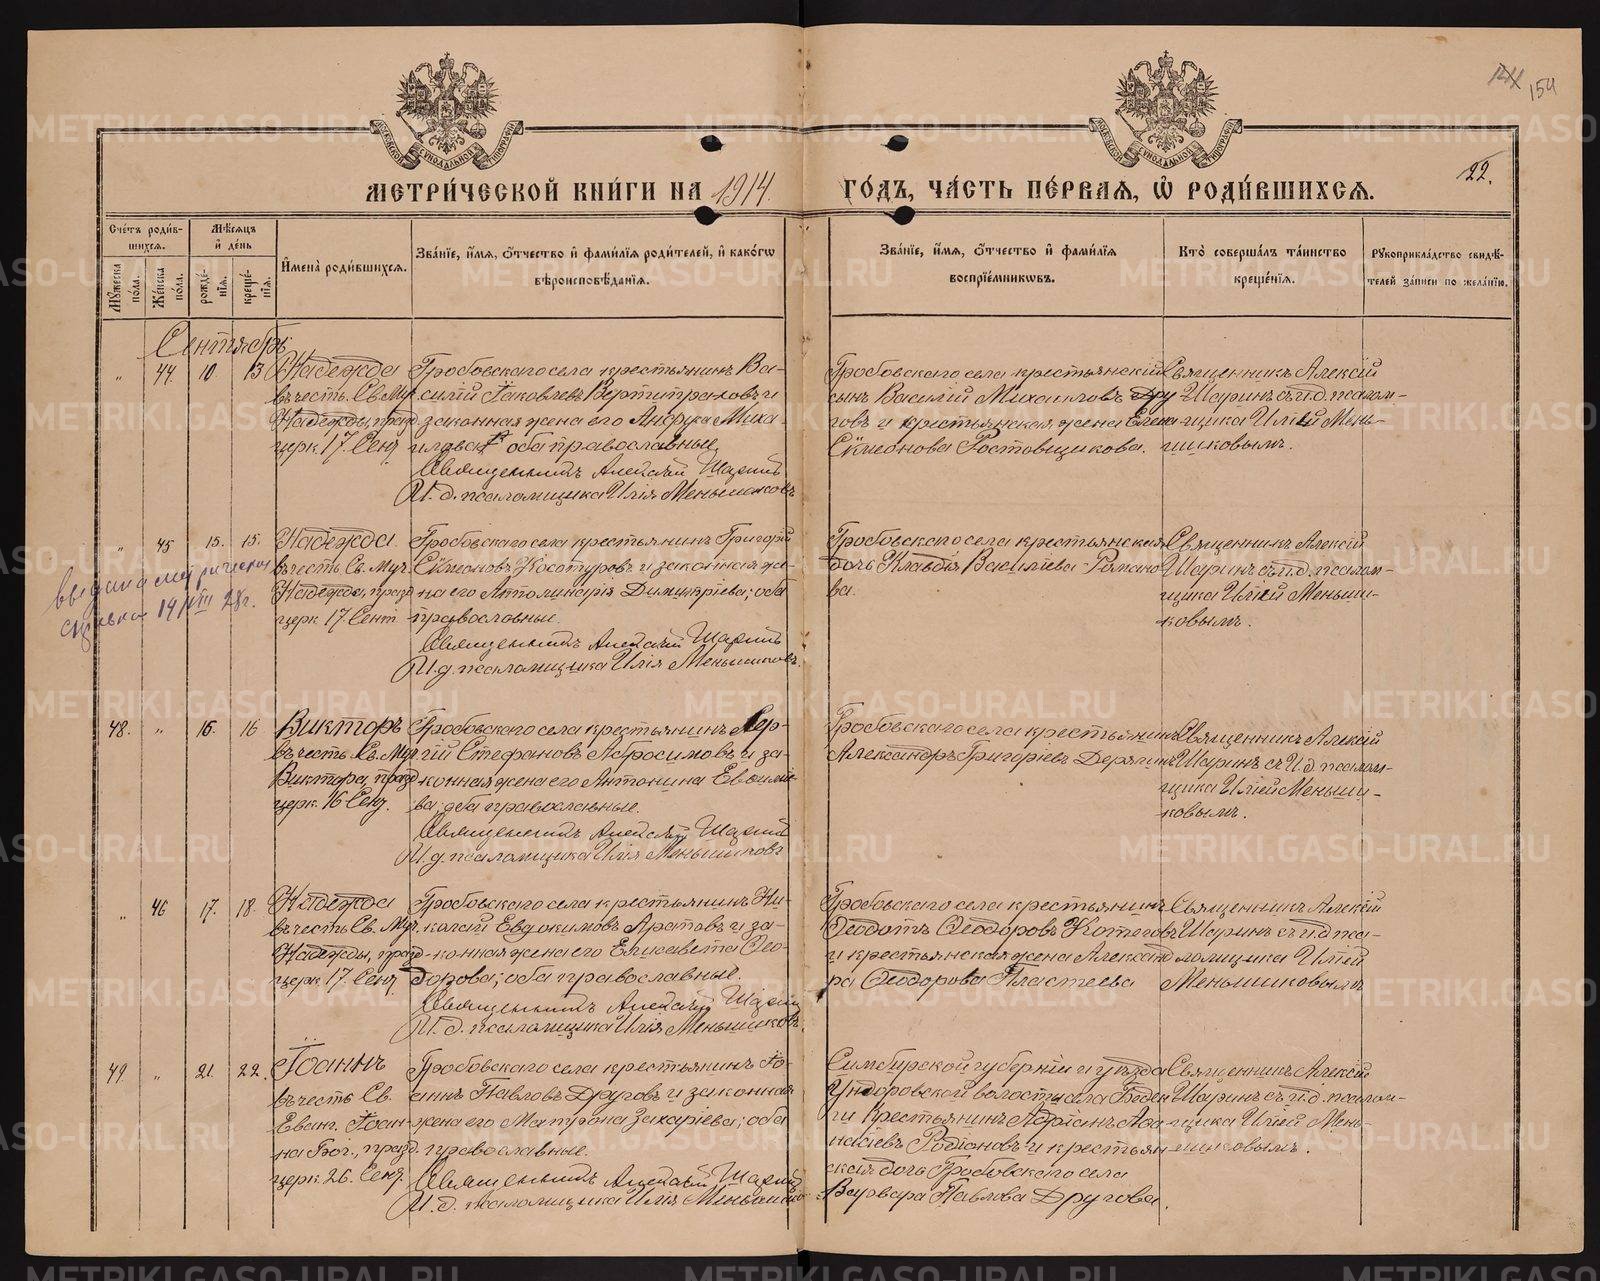 144 154
22.
МЕТРИ́ЧЕСКОЙ КНИ́ГИ НА 1914 ГО́ДЪ, ЧА́СТЬ ПЕ́РВАЯ, Ѡ РОДИ́ВШИХСЯ.
Сче́тъ роди́в-
шихся.
Мѣ́сяцъ
и́ де́нь
Мꙋ́жеска по́ла.
Же́нска по́ла.
рожде́-
нїя.
креще́-
нїя.
И҆мена̀ роди́вшихся.
Зва́нїе, и҆́мя, о҆́тчество и҆ фами́лїя роди́телей, и҆ како́гѡ
вѣроисповѣ́данїя.
Зва́нїе, и҆́мя, о҆́тчество и҆ фами́лїя
воспрїе́мникѡвъ.
Кто̀ соверша́лъ та́инство
креще́нїя.
Рꙋкоприкла́дство свидѣ́-
телей за́писи по жела́нїю.
Сентябрь
„ 44. 10 13
Надежда
въ честь Св. Муч.
Надежды, празд.
церк. 17. Сент.
Гробовскаго села крестьянинъ Ва-
силій Іаковлевъ Вертипраховъ и
законная жена его Анфуса Миха
илова; оба православные
Священникъ Алексій Шаринъ
И. д. псаломщика Илія Меньшиковъ
Гробовскаго села крестьянскій
сынъ Василій Михаиловъ Дру
говъ и крестьянская жена Елена
Сѷмеонова Ростовщикова.
Священникъ Алексій
Шаринъ съ и. д. псалом-
щика Иліей Мень-
шиковымъ.
„ 45 15. 15.
Надежда
въ честь Св. Муч.
Надежда, празд
церк. 17. Сент
Гробовскаго села крестьянинъ Григорій
Сѷмеоновъ Косотуровъ и законная же-
на его Апполинарія Димитріева; оба
православные
Священникъ Алексій Шаринъ
И. д. псаломщика Илія Меньшиковъ.
Гробовскаго села крестьянская
дочь Клавдія Василіева Романо
ва.
Священникъ Алексій
Шаринъ съ и. д. псалом-
щика Иліей Меньши-
ковымъ.
выдана метрическая
справка 14/VIII 28г.
48. „ 15. 16
Викторъ
въ честь Св. Муч.
Виктора, празд
церк. 16 Сент.
Гробовскаго села крестьянинъ Сер-
гій Стефановъ Абросимовъ и за-
конная жена его Антонина Евфиміе
ва; оба православные.
Священникъ Алексій Шаринъ
И. д. псаломщика Илія Меньшиковъ
Гробовскаго села крестьянинъ
Александръ Григоріевъ Дерягинъ
Священникъ Алексій
Шаринъ съ И. д. псалом-
щика Иліей Меньши-
ковымъ.
„ 46 17. 18.
Надежда
въ честь Св. Муч.
Надежды, празд-
церк. 17. Сент
Гробовскаго села крестьянинъ Ни-
колай Евдокимовъ Аратовъ и за-
конная жена его Елисавета Ѳео-
дорова; оба православные.
Священникъ Алексій Шаринъ
И. д. псаломщика Илія Меньшиковъ.
Гробовскаго села крестьянинъ
Ѳеодотъ Ѳеодоровъ Котеговъ
и крестьянская жена Александ
ра Ѳеодорова Пластеева
Священникъ Алексій
Шаринъ съ и. д пса-
ломщика Иліей
Меньшиковымъ
49 „ 21. 22.
Іоаннъ
въ честь Св.
Еван. Іоан-
на Бог., празд.
церк. 26. Сент.
Гробовскаго села крестьянинъ Іо-
аннъ Павловъ Друговъ и законная
жена его Матрона Захаріева; оба
православные.
Священникъ Алексій Шаринъ
И. д. псаломщика Илія Меньшиковъ
Симбирской губерніи и уѣзда
Ундоровской волости села Беден
ги крестьянинъ Адріанъ Афа
насіевъ Родіоновъ и крестьян
ская дочь Гробовскаго села
Варвара Павлова Другова.
Священникъ Алексій
Шаринъ съ и. д. псалом-
щика Иліей Мень-
шиковымъ.